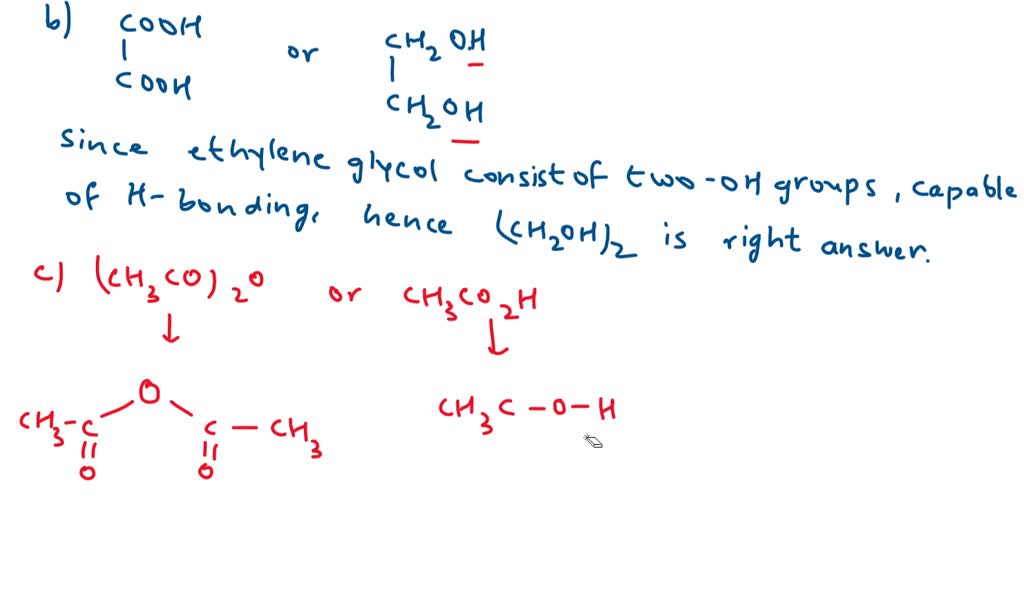 b) COOH or CH2OH
| |
COOH CH2OH
Since ethylene glycol consist of two -OH groups, capable
of H-bonding, hence (CH2OH)2 is right answer.
c) (CH3CO)2O or CH3CO2H
↓ ↓
O
CH3-C C-CH3 CH3C-O-H
|| ||
O O